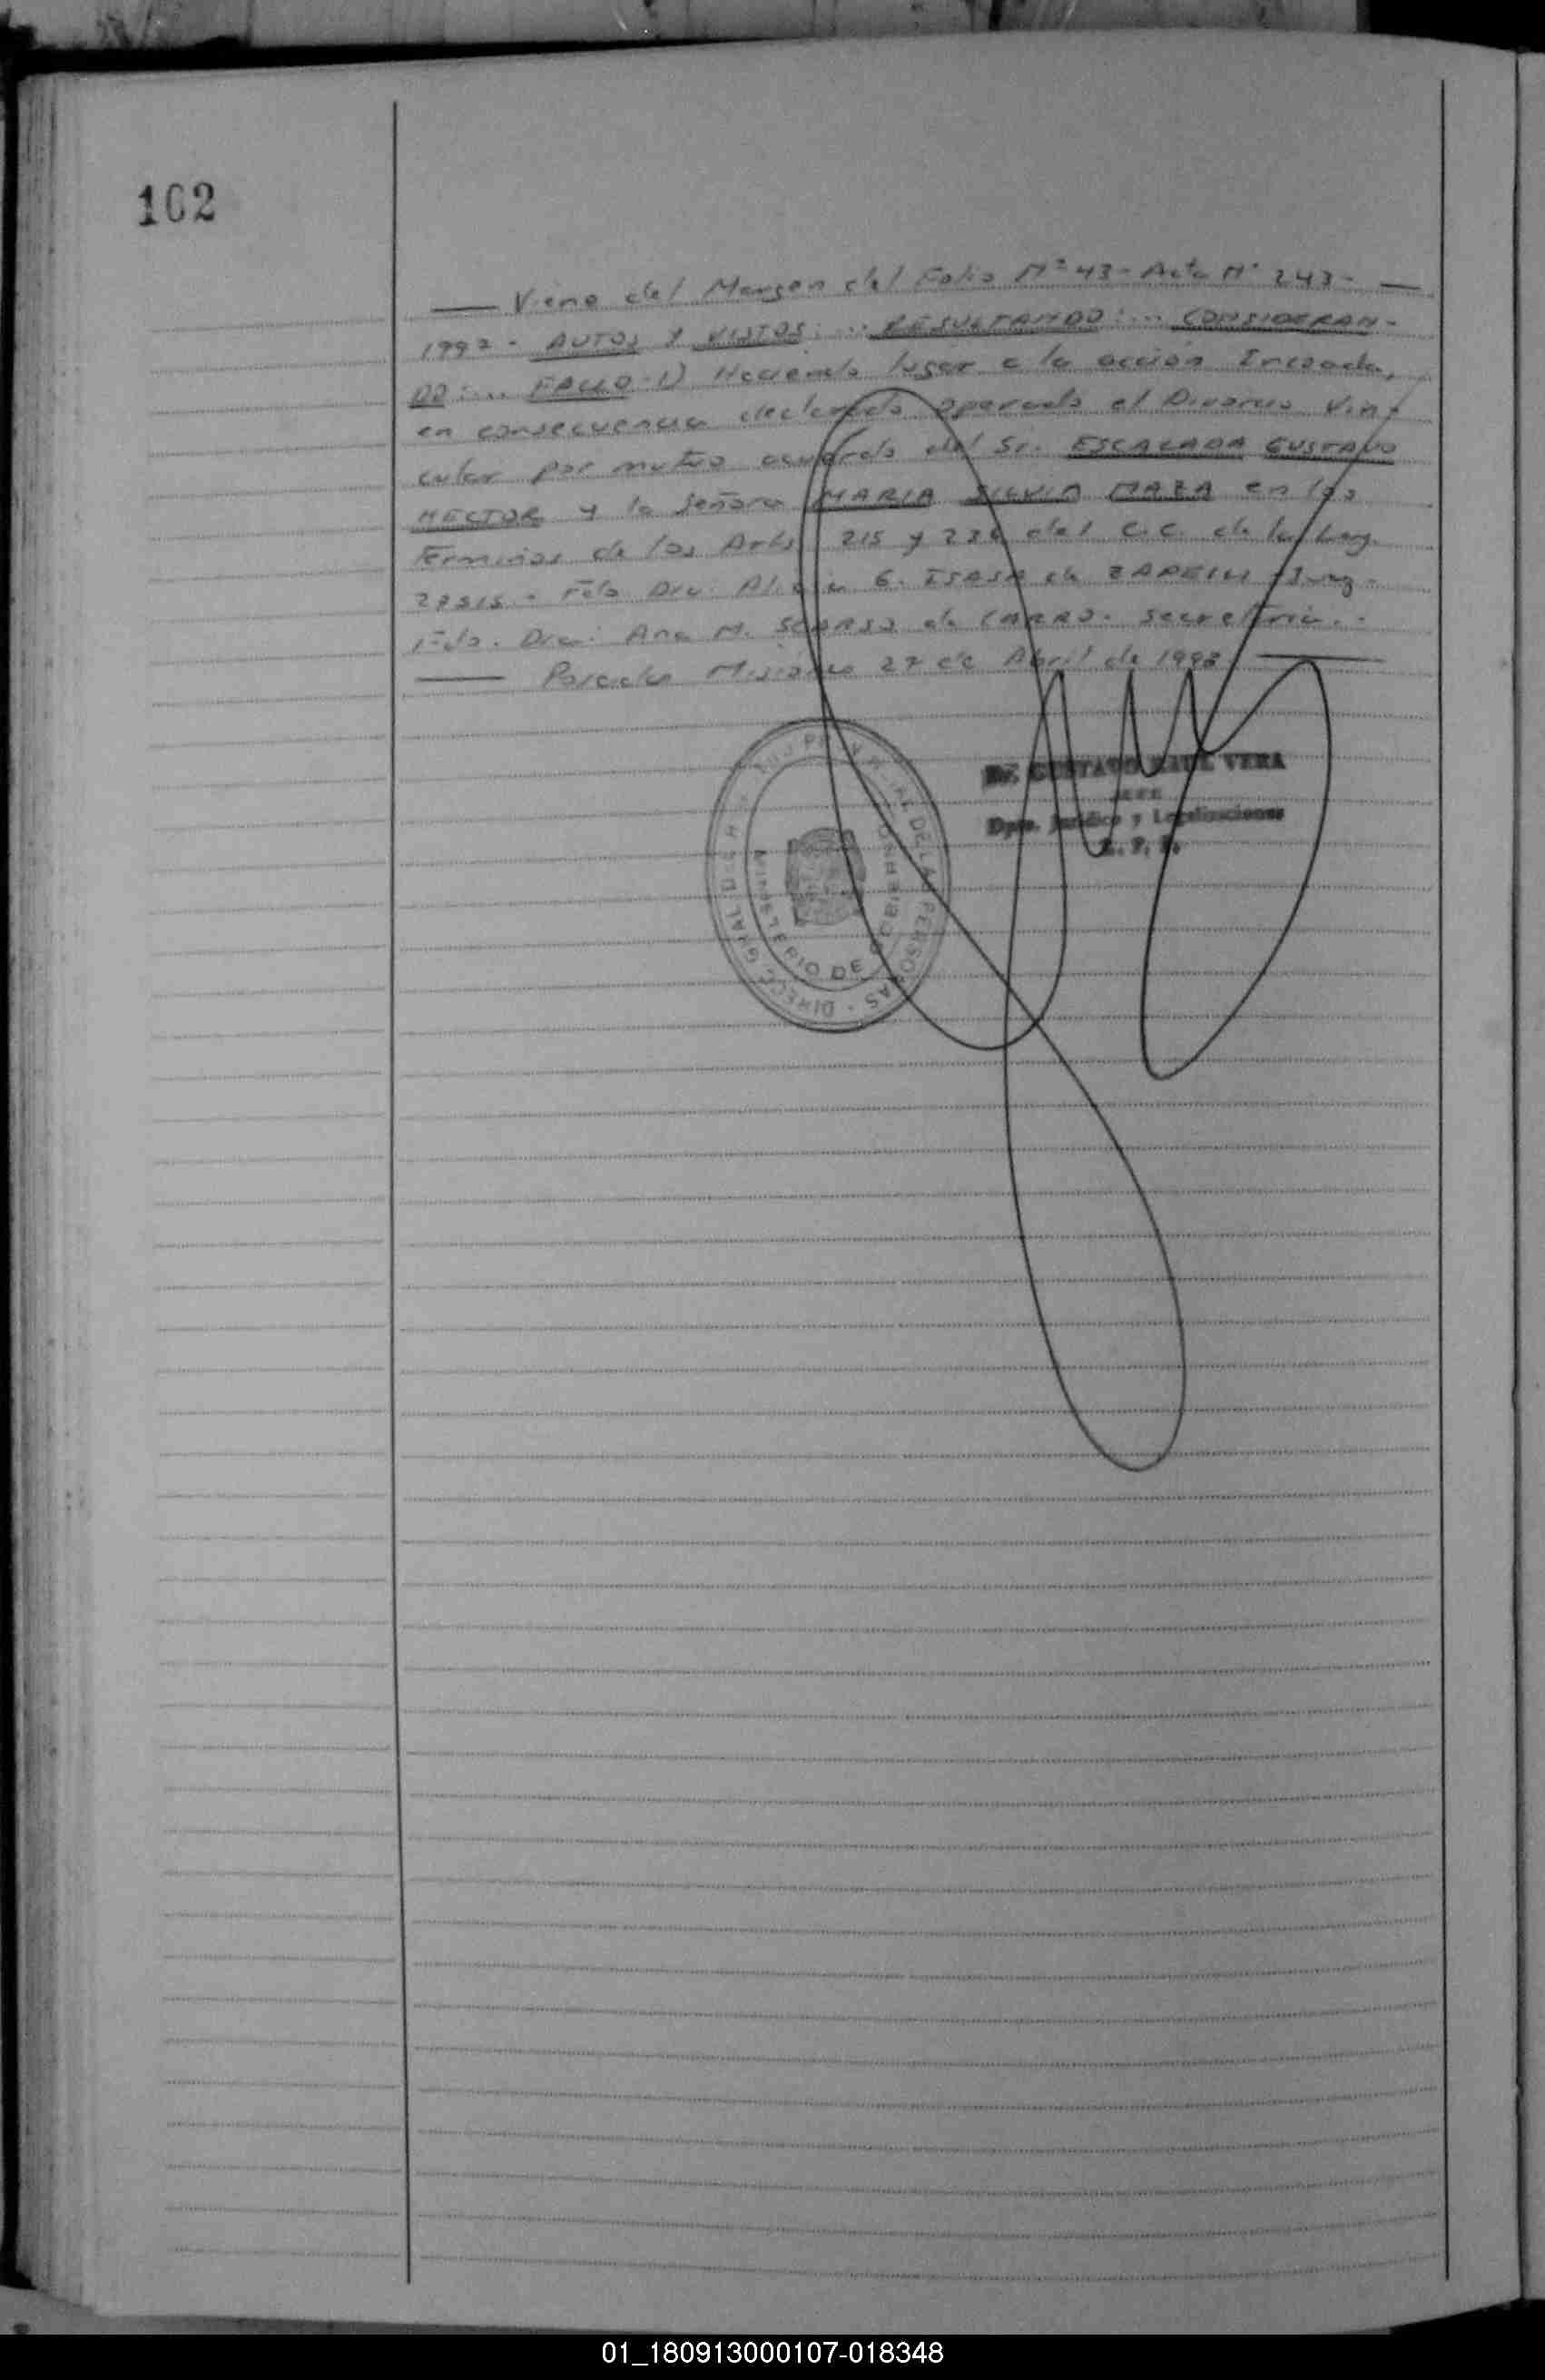 102
— Viene del Margen del Folio Nº 43 - Acta Nº 243 - —
1992 - AUTOS Y VISTOS: ... RESULTANDO: ... CONSIDERAN-
DO: ... FALLO - 1) Haciendo lugar a la acción Incoada,
en consecuencia declarado operado el Divorcio Vin-
cular por mutuo acuerdo del Sr. ESCALADA GUSTAVO
HECTOR y la Señora MARIA SILVIA MAZA en los
Terminos de los Arts. 215 y 236 del C.C. de la Ley
23515 - Fdo Dra. Alicia G. ISASA de
Fdo. Dra: Ana M. de CARRO. Secretaria. -
— Posadas Misiones 27 de Abril de 1998 —
Dr. GUSTAVO RAUL VERA
JEFE
Dpto. Jurídico y Legalizaciones
R. P. P.
DIRECC. GRAL. DEL REG. PROVINCIAL DE LAS PERSONAS
MINISTERIO DE GOBIERNO
01_180913000107-018348